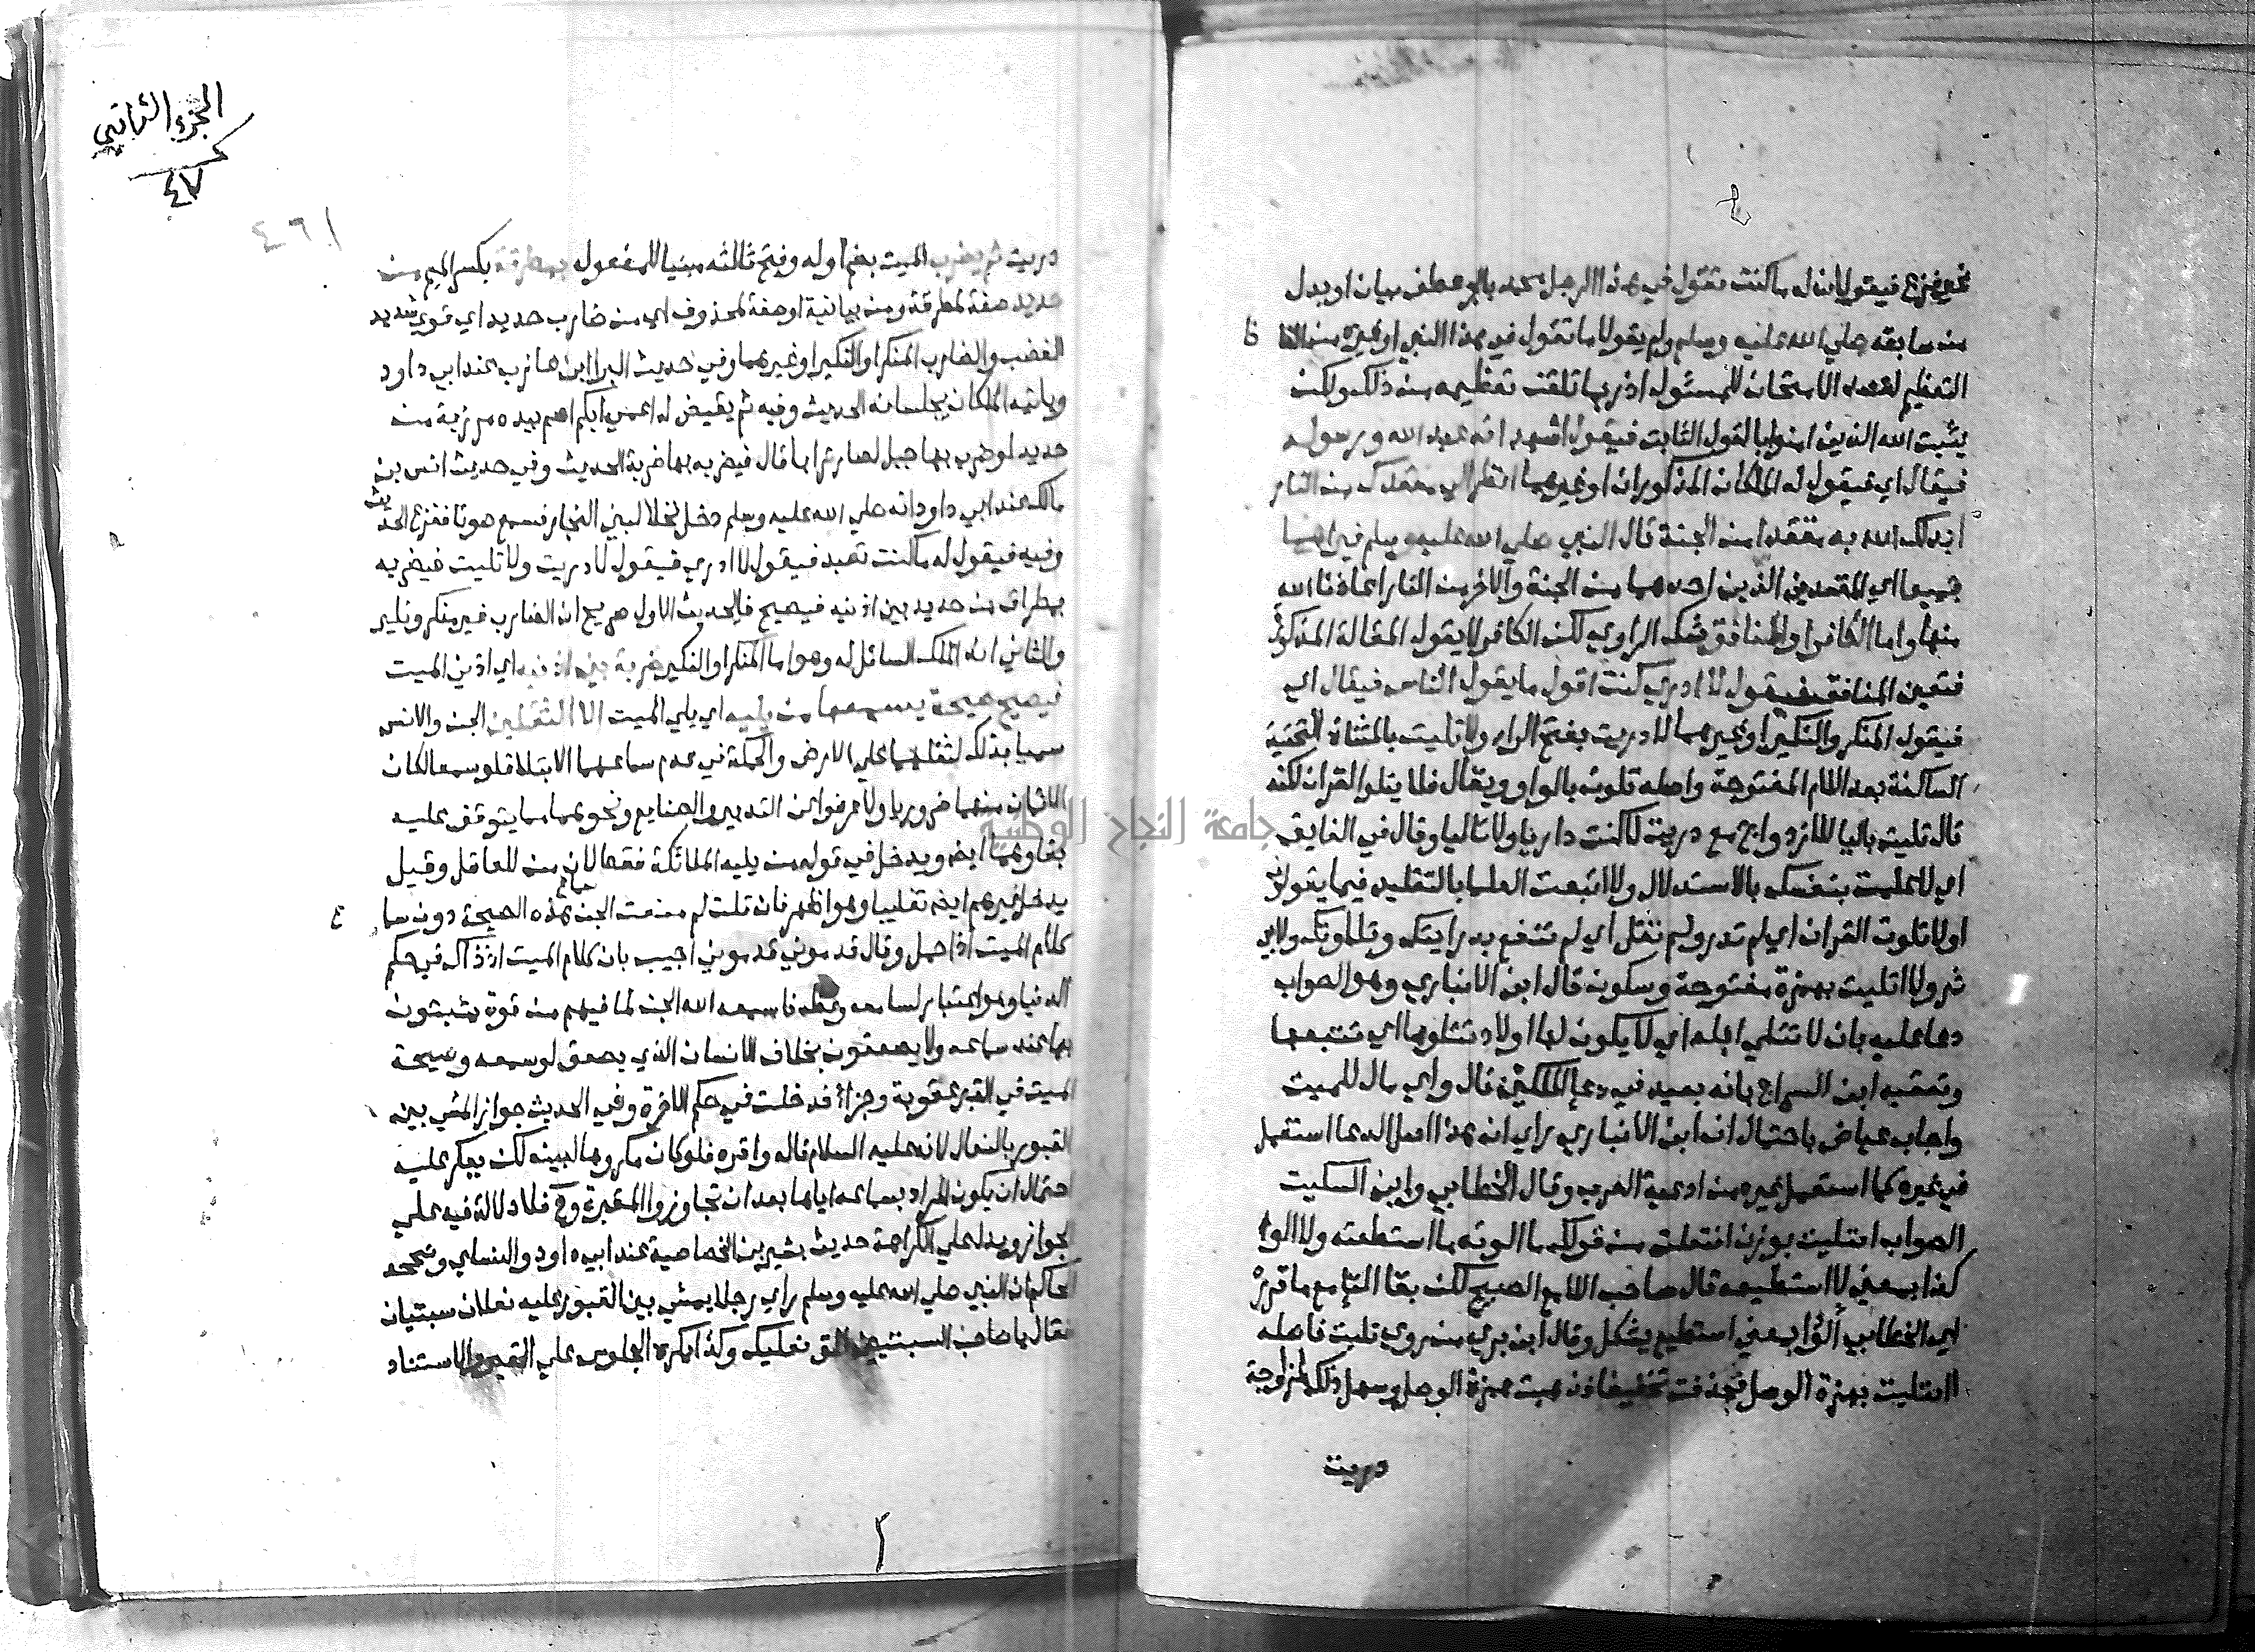 فيفزع فيقولان له ما كنت تقول في هذا الرجل محمد بالجر عطف بيان او بدل
من سابقه صلي الله عليه وسلم ولم يقولا ما تقول في هذا النبي او غيره من الفا ظ
التعظيم لقصد الامتحان للمسئول اذ ربما تلقن تعظيمه من ذلك ولكن
يثبت الله الذين امنوا بالقول الثابت فيقول اشهد انه عبد الله ورسوله
فيقال اي فيقول له الملكان المذكوران او غيرهما انظر الي مقعدك من النار
ابدلك الله به مقعدا من الجنة قال النبي صلي الله عليه وسلم فيراهما
جميعا اي المقعدين الذين احدهما من الجنة والاخر من النار اعاذنا الله
منها واما الكافر او المنافق شك الراوي لكن الكافر لا يقول المقالة المذكورة
فتعين المنافق فيقول لا ادري كنت اقول ما يقول الناس فيقال اي
فيقول المنكر والنكير او غيرهما لا دريت بفتح الراء ولا تليت بالمثناة التحتية
الساكنة بعد اللام المفتوحة واصله تلوت بالواو ويقال فلا يتلو القران لكنه
قال تليت باليا للازدواج مع دريت لا كنت داريا ولا تاليا وقال في الفايق
اي لا علمت بنفسك بالاستدلال ولا اتبعت العلما بالتقليد فيما يقولون
او لا تلوت القران اي لم تدر ولم تتل اي لم تنتفع بدرايتك وتلاوتك ولابي
ذر ولا اتليت بهمزة مفتوحة وسكون قال ابن الانباري وهو الصواب
دعا عليه بان لا تتلي ابله اي لا يكون لها اولاد تتلوها اي تتبعها
وتعقبه ابن السراج بانه بعيد في دعا الملكين قال واي مال للميت
واجاب عياض باحتمال ان ابن الانباري راي ان هذا اصل الدعا استعمل
في غيره كما استعمل غيره من ادعية العرب وقال الخطابي وابن السكيت
الصواب ائتليت بوزن افتعلت من قولك ما الوته ما استطعته ولا الوا
كذا بمعني لا استطيعه قال صاحب اللامع الصبيح لكن بقا التا مع ما قرره
اي الخطابي الوا بمعني استطيع يشكل وقال ابن بري من روي تليت فاصله
ائتليت بهمزة الوصل فحذفت تخفيفا فذهبت همزة الوصل وسهل ذلك لمزاوجة
دريت
الجزء الثاني
٤٧
٤٦١
دريت ثم يضرب الميت بضم اوله وفتح ثالثه مبنيا للمفعول بمطرقة بكسر الميم من
حديد صفة لمطرقة ومن بيانية او صفة لمحذوف اي من ضارب حديد اي قوي شديد
الغضب والضارب المنكر او النكير او غيرهما وفي حديث البرا ابن عازب عند ابي داود
وياتيه الملكان يجلسانه الحديث وفيه ثم يقيض له اعمي ابكم اصم بيده مرزبة من
حديد لو ضرب بها جبل لصار ترابا قال فيضربه بها ضربة الحديث وفي حديث انس بن
مالك عند ابي داود انه صلي الله عليه وسلم دخل نخلا لبني النجار فسمع صوتا ففزع الحديث
وفيه فيقول له ما كنت تعبد فيقول لا ادري فيقول لا دريت ولا تليت فيضربه
بمطراق من حديد بين اذنيه فيصيح فالحديث الاول صريح ان الضارب غير منكر ونكير
والثاني انه الملك السائل له وهو اما المنكر او النكير ضربة بين اذنيه اي اذني الميت
فيصيح صيحة يسمعها من يليه اي يلي الميت الا الثقلين الجن والانس
سميا بذلك لثقلهما علي الارض والحكمة في عدم سماعهما الابتلا فلو سمعا لكان
الايمان منهما ضروريا ولاعرضوا عن التدبير والصنايع ونحوهما مما يتوقف عليه
بقاوهما ايضا ويدخل في قوله من يليه الملائكة فقط لان من للعاقل وقيل
يدخل غيرهم ايضا تغليبا وهو اظهر فان قلت لم منعت الجن سماع هذه الصيحة دون سما ع
كلام الميت اذا حمل وقال قدموني قدموني اجيب بان كلام الميت اذ ذاك في حكم
الدنيا وهو اعتبار لسامعه وعظه فاسمعه الله الجن لما فيهم من قوة يثبتون
بها عند سماعه ولا يصعقون بخلاف الانسان الذي يصعق لو سمعه وصيحة
الميت في القبر عقوبة وجزاء فدخلت في حكم الاخرة وفي الحديث جواز المشي بين
القبور بالنعال لانه عليه السلام قاله واقره فلو كان مكروها لبينه لكن يعكر عليه
احتمال ان يكون المراد بسماعه اياها بعد ان تجاوزوا المقبرة وح فلا دلالة فيه علي
الجواز ويدل علي الكراهة حديث بشير بن الخصاصية عند ابي داود والنساي وصححه
الحاكم ان النبي صلي الله عليه وسلم راي رجلا يمشي بين القبور عليه نعلان سبتيتان
فقال يا صاحب السبتيتين الق نعليك وكذا يكره الجلوس علي القبر والاستناد
٢
جامعة النجاح الوطنية